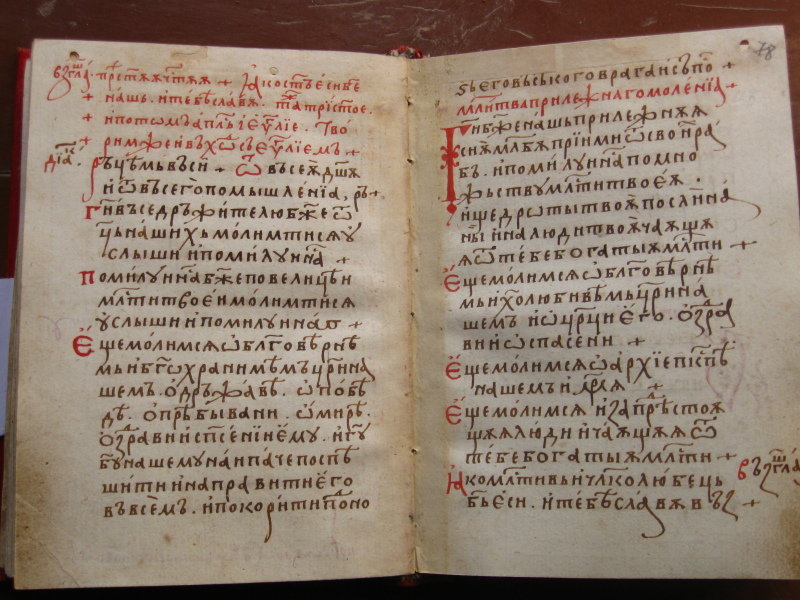 нашь. и тебѣ славѫ.
и потомъ ап҃лъ і еѵ҃лїе. Тво
рим же и въхѡⷣ съ еѵ҃лїемъ +
Рьцѣмь вьси + Ѿ всеѫ дш҃ѧ
и ѿ всего помышленїа, рь +
Ги҃ въседрьжителю бж҃е ѿ
ць наших ь молим ти сѧ у
слыши и помилуи на +
Помилуи на бж҃е по велицѣи
млⷭ҇ти твоеи молим ти сѧ
услыши и помилуи на +
Еще молимсѧ ѡ бл҃говѣрнѣ
мь и бг҃ѡхранимѣмъ цр҃и на
шемъ. ѡ дръжавѣ. ѡ побѣ
дѣ. ѡ прѣбывани. ѡ мирѣ.
ѡ здравии и сп҃сенїи ему. и г҃у
б҃у нашему наипаче поспѣ
шити и направити его
въ всѣмъ. и покорити под но
ѕѣ его въського врага и съпо +
Мл҃итва прилежнаго моленїа
Ги҃ бж҃е нашь прилежнѫѧ
сиѫ млт҃вѫ прїими ѿ свои ра
бъ. и помилуи на по мно
жьству млⷭ҇ти твоеѧ.
и щедрѡты твоѧ посли на
ны и на люди твоѧ чаѫщѫ
ѧ ѿ тебе богатыѧ млⷭ҇ти +
Еще молимсѧ ѡ бл҃говѣрнѣ
мь и хⷭ҇олюбивѣмь цр҃и на
шемъ и ѡ цр҃ци его. ѡ здра
вии ѡ спасени +
Еще молимсѧ ѡ архїепⷭ҇кпѣ
нашемъ +
Еще молимсѧ и за прⷣѣстоѧ
щѫѧ люди и чаѫщѫѧ ѿ
тебе богатыѧ млⷭ҇ти +
Ꙗко млⷭ҇тивь и чл҃колюбець
бь҃ еси. и тебѣ славѫ въз +
възглⷲа